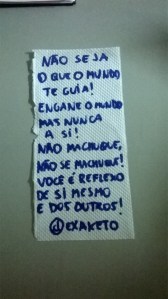 NÃO SEJA
O QUE O MUNDO
TE GUIA!
ENGANE O MUNDO
MAS NUNCA
A SÍ!
NÃO MACHUQUE,
NÃO SE MACHUQUE!
VOCÊ É REFLEXO
DE SÍ MESMO
E DOS OUTROS!
@EXAKETO